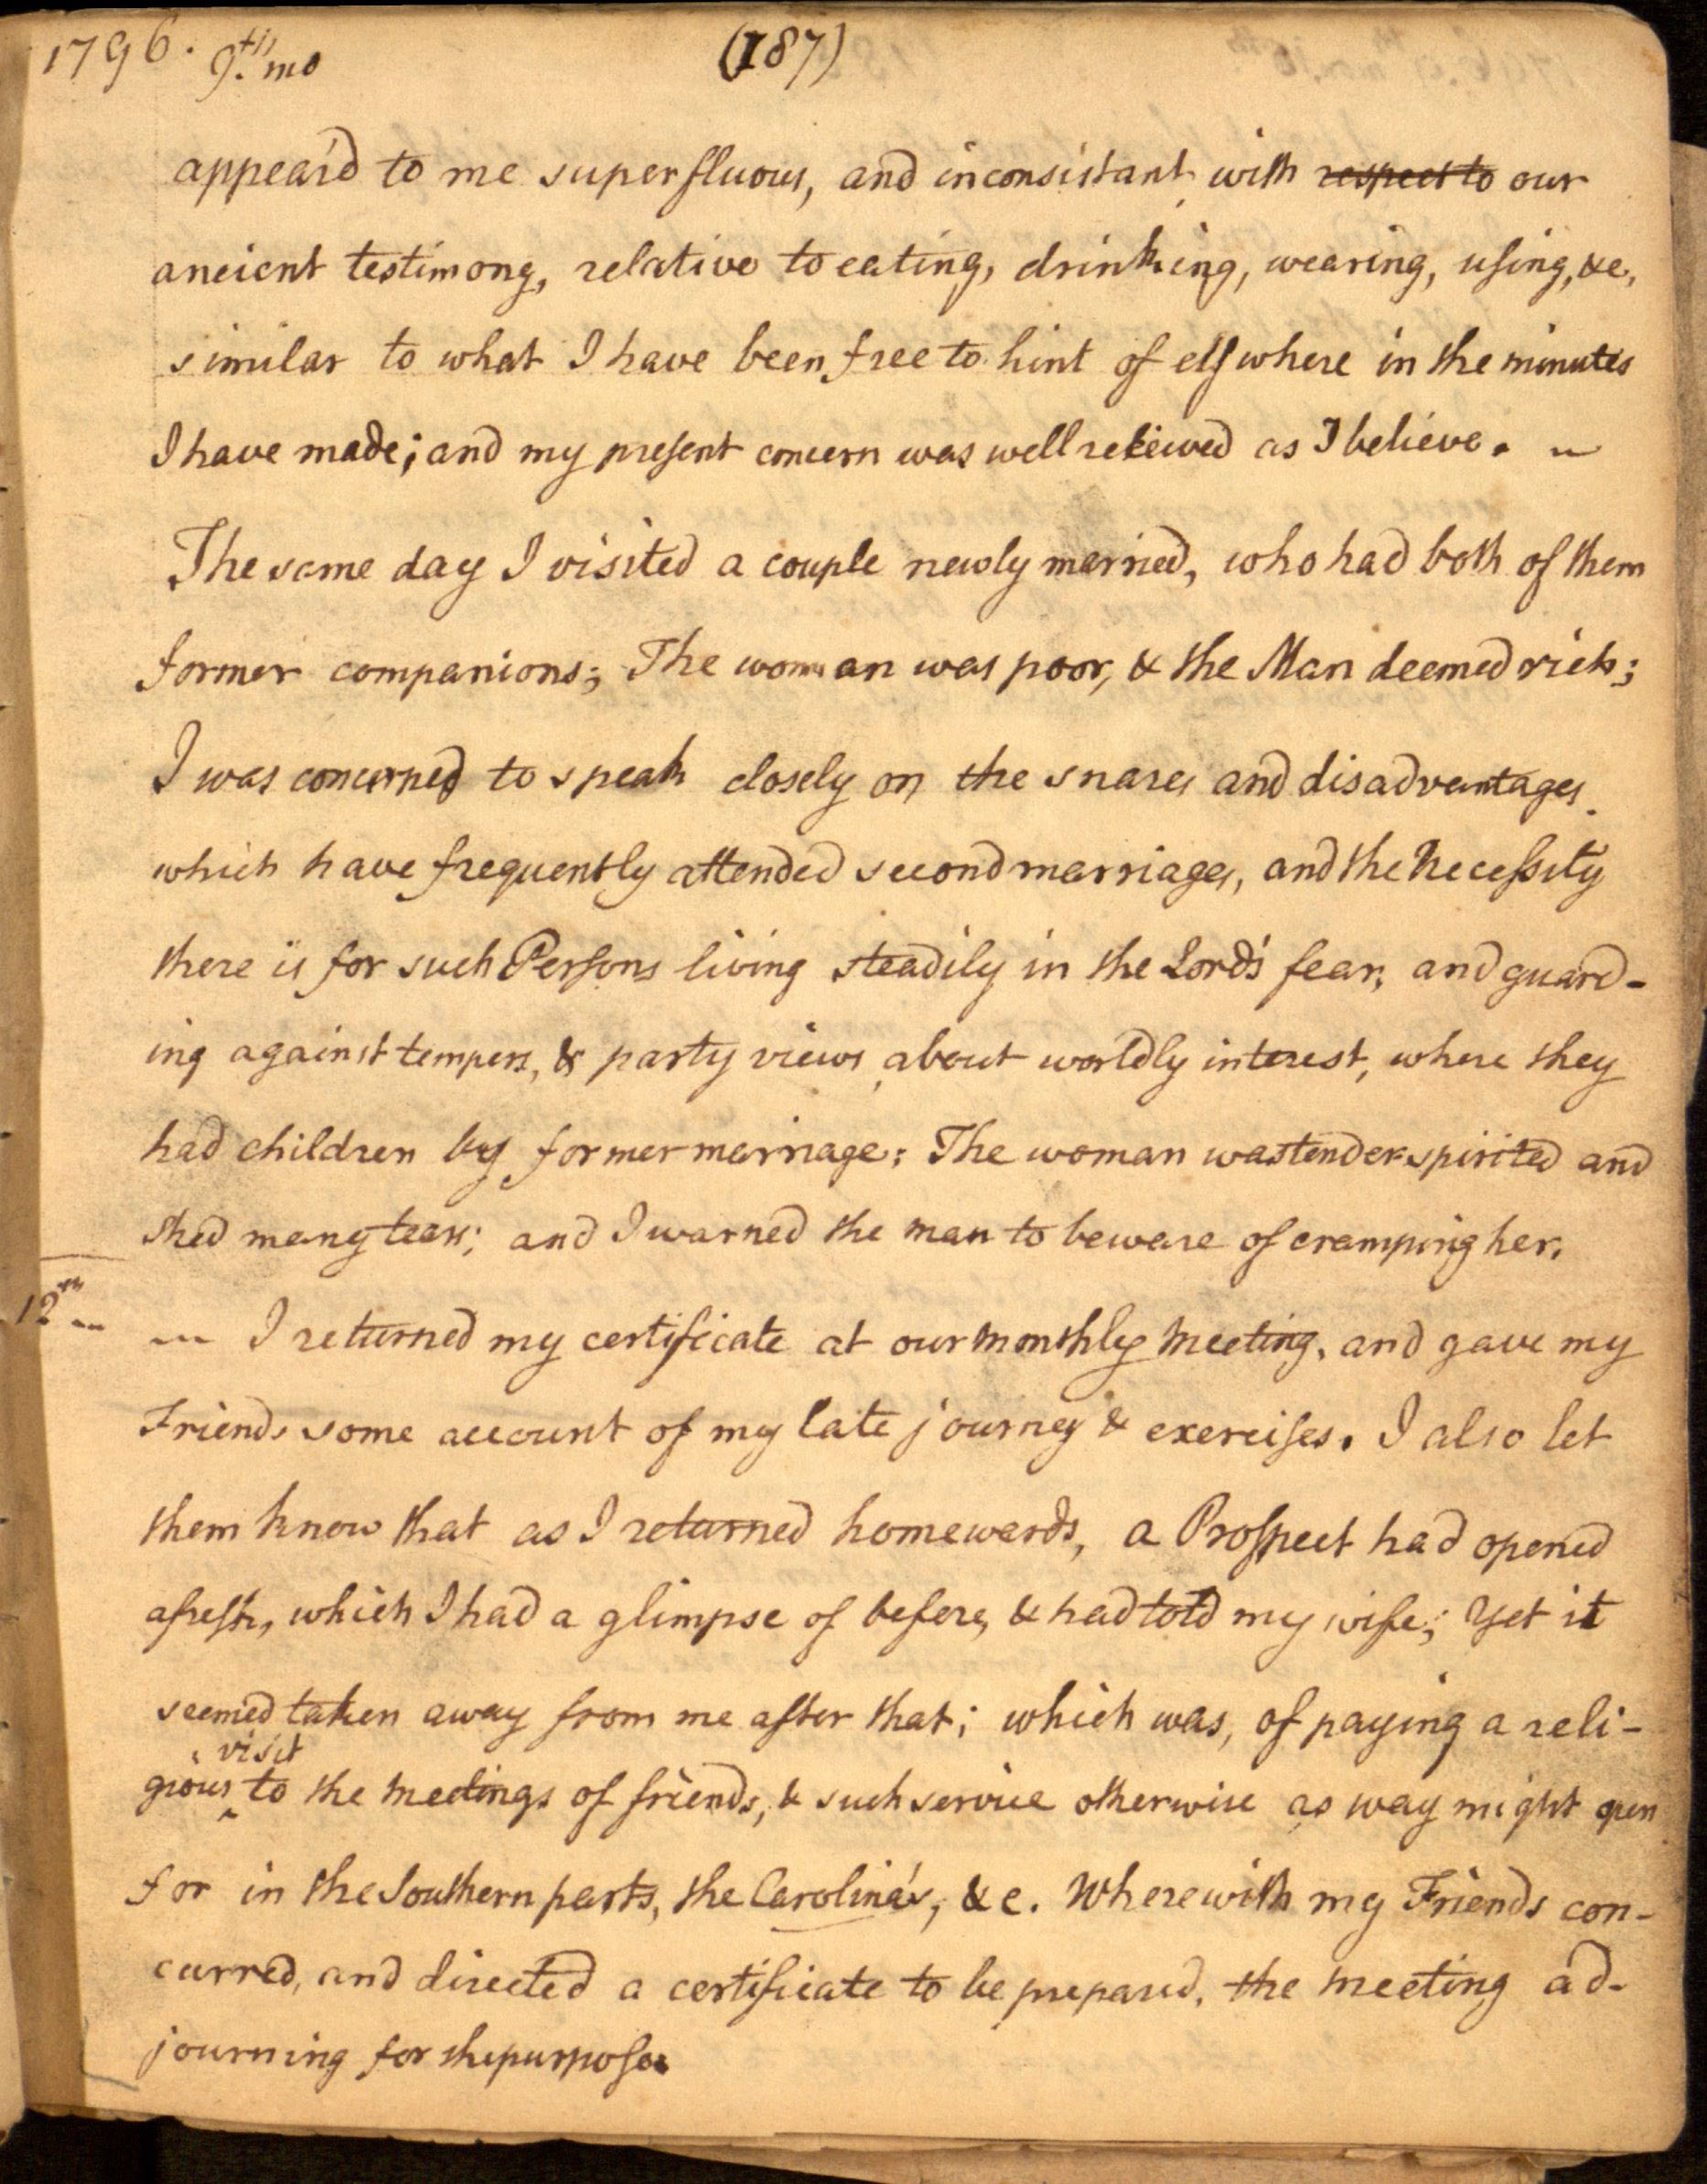 1796. 9th. mo (187)
appear'd to me superfluous, and inconsistant with respect to our
ancient testimony, relative to eating, drinking, wearing, using, &c,
similar to what I have been free to hint of elswhere in the minutes
I have made; and my present concern was well reteived as I believe. ~
The same day I visited a couple newly married, who had both of them
former companions; The woman was poor, & the Man deemed rich;
I was concerned to speak closely on the snares and disadvantages
which have frequently attended second marriages, and the Necessity
there is for such Persons living steadily in the Lord's fear, and guard-
ing against tempers, & party views about worldly interest, where they
had children by former marriage: The woman was tender spirited and
shed many tears; and I warned the man to beware of cramping her.
12th ~ ~ I returned my certificate at our monthly meeting, and gave my
Friends some account of my late journey & exercises. I also let
them know that as I returned homewards, a Prospect had opened
afresh, which I had a glimpse of before, & had told my wife; Yet it
seemed taken away from me after that; which was, of paying a reli-
visit
gious ^ to the meetings of friends, & such service otherwise as way might open
for in the Southern parts, the Carolina's, &c. Wherewith my Friends con-
curred, and directed a certificate to be prepared, the meeting ad-
journing for the purpose.